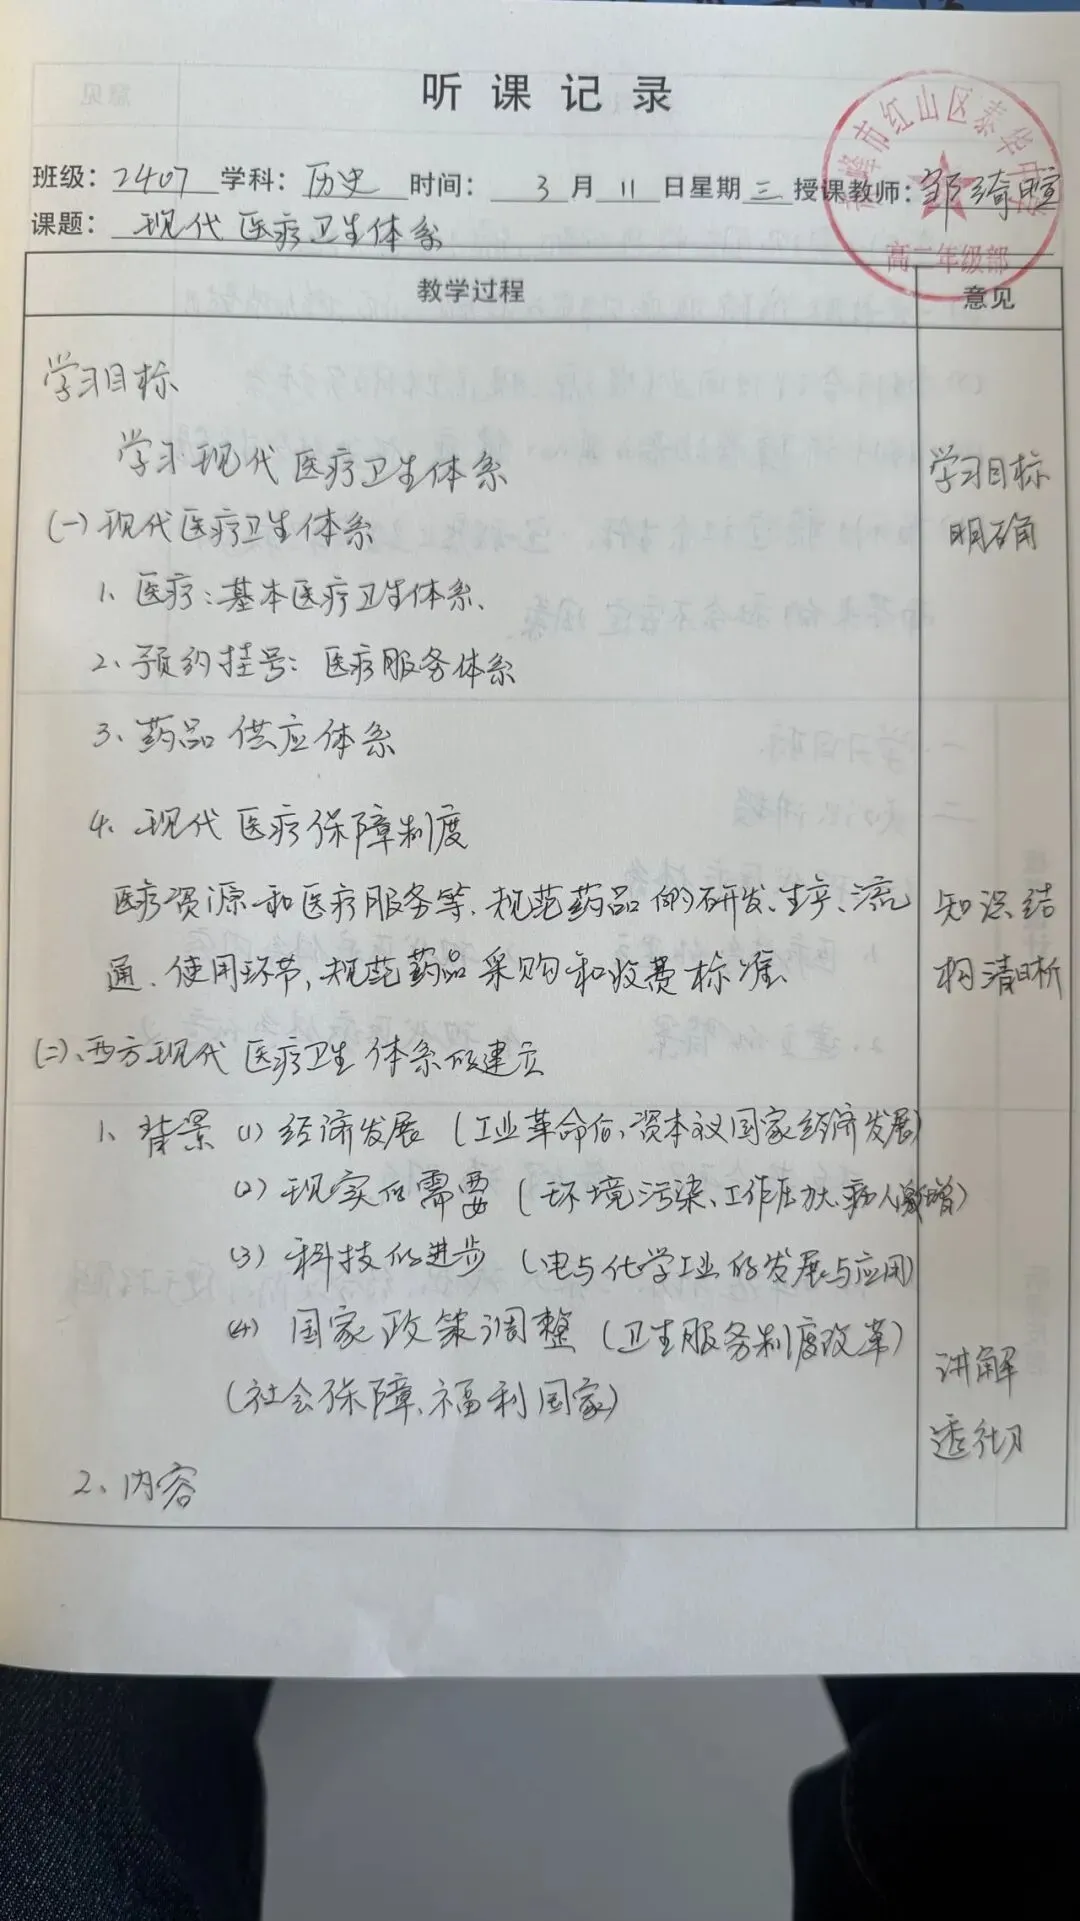 听课记录
班级：2407 学科：历史 时间：3月11日星期三 授课教师：邹绮暄
课题：现代医疗卫生体系
市红山区泰华
高二年级部
教学过程 意见
学习目标
学习现代医疗卫生体系
(一)现代医疗卫生体系
1、医疗：基本医疗卫生体系、
2、预约挂号：医疗服务体系
3、药品供应体系
4、现代医疗保障制度
医疗资源和医疗服务等、规范药品的研发、生产、流
通、使用环节，规范药品采购和收费标准
(二)、西方现代医疗卫生体系的建立
1、背景 (1) 经济发展（工业革命后，资本主义国家经济发展）
(2) 现实的需要（环境污染、工作压力大、病人激增）
(3) 科技的进步（电与化学工业的发展与应用）
(4) 国家政策调整（卫生服务制度改革）
（社会保障、福利国家）
2、内容
学习目标
明确
知识结
构清晰
讲解
透彻